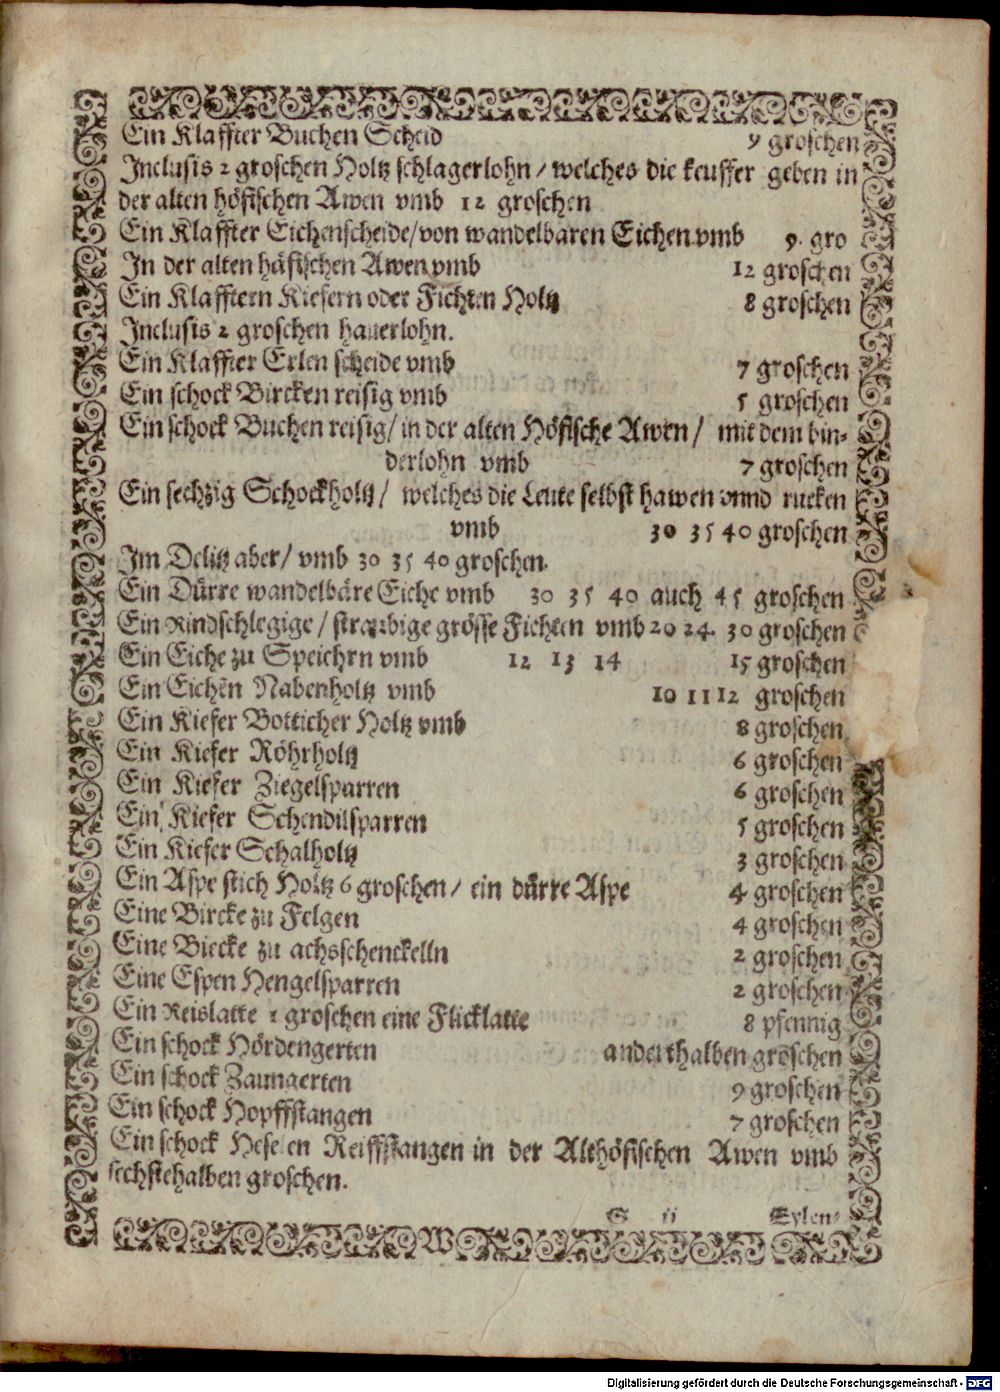 Ein Klaffter Buchen Scheid 9 groschen
Inclusis 2 groschen Holtz schlagerlohn / welches die keuffer geben in
der alten höfischen Awen vmb 12 groschen
Ein Klaffter Eichenscheide/von wandelbaren Eichen vmb 9. gro
In der alten häfischen Awen vmb 12 groschen
Ein Klafftern Kiefern oder Fichten Holtz 8 groschen
Inclusis 2 groschen hauerlohn.
Ein Klaffter Erlen scheide vmb 7 groschen
Ein schock Bircken reisig vmb 5 groschen
Ein schock Buchen reisig/ in der alten Höfische Awen / mit dem bin-
derlohn vmb 7 groschen
Ein sechzig Schockholtz / welches die Leute selbst hawen vnnd rucken
vmb 30 35 40 groschen
Im Delitz aber/ vmb 30 35 40 groschen.
Ein Dürre wandelbäre Eiche vmb 30 35 40 auch 45 groschen
Ein Rindschlegige / straubige grösse Fichten vmb 20 24. 30 groschen
Ein Eiche zu Speichrn vmb 12 13 14 15 groschen
Ein Eichen Nabenholtz vmb 10 11 12 groschen
Ein Kiefer Botticher Holtz vmb 8 groschen
Ein Kiefer Röhrholtz 6 groschen
Ein Kiefer Ziegelsparren 6 groschen
Ein Kiefer Schendilsparren 5 groschen
Ein Kiefer Schalholtz 3 groschen
Ein Aspe stich Holtz 6 groschen / ein dürre Aspe 4 groschen
Eine Bircke zu Felgen 4 groschen
Eine Biecke zu achsschenckelln 2 groschen
Eine Espen Hengelsparren 2 groschen
Ein Reislatte 1 groschen eine Flicklatte 8 pfennig
Ein schock Hördengerten anderthalben groschen
Ein schock Zaungerten 9 groschen
Ein schock Hopffstangen 7 groschen
Ein schock Reiffstangen in der Althöfischen Awen vmb
sechstehalben groschen.
S ij Eylen-
Digitalisierung gefördert durch die Deutsche Forschungsgemeinschaft - DFG